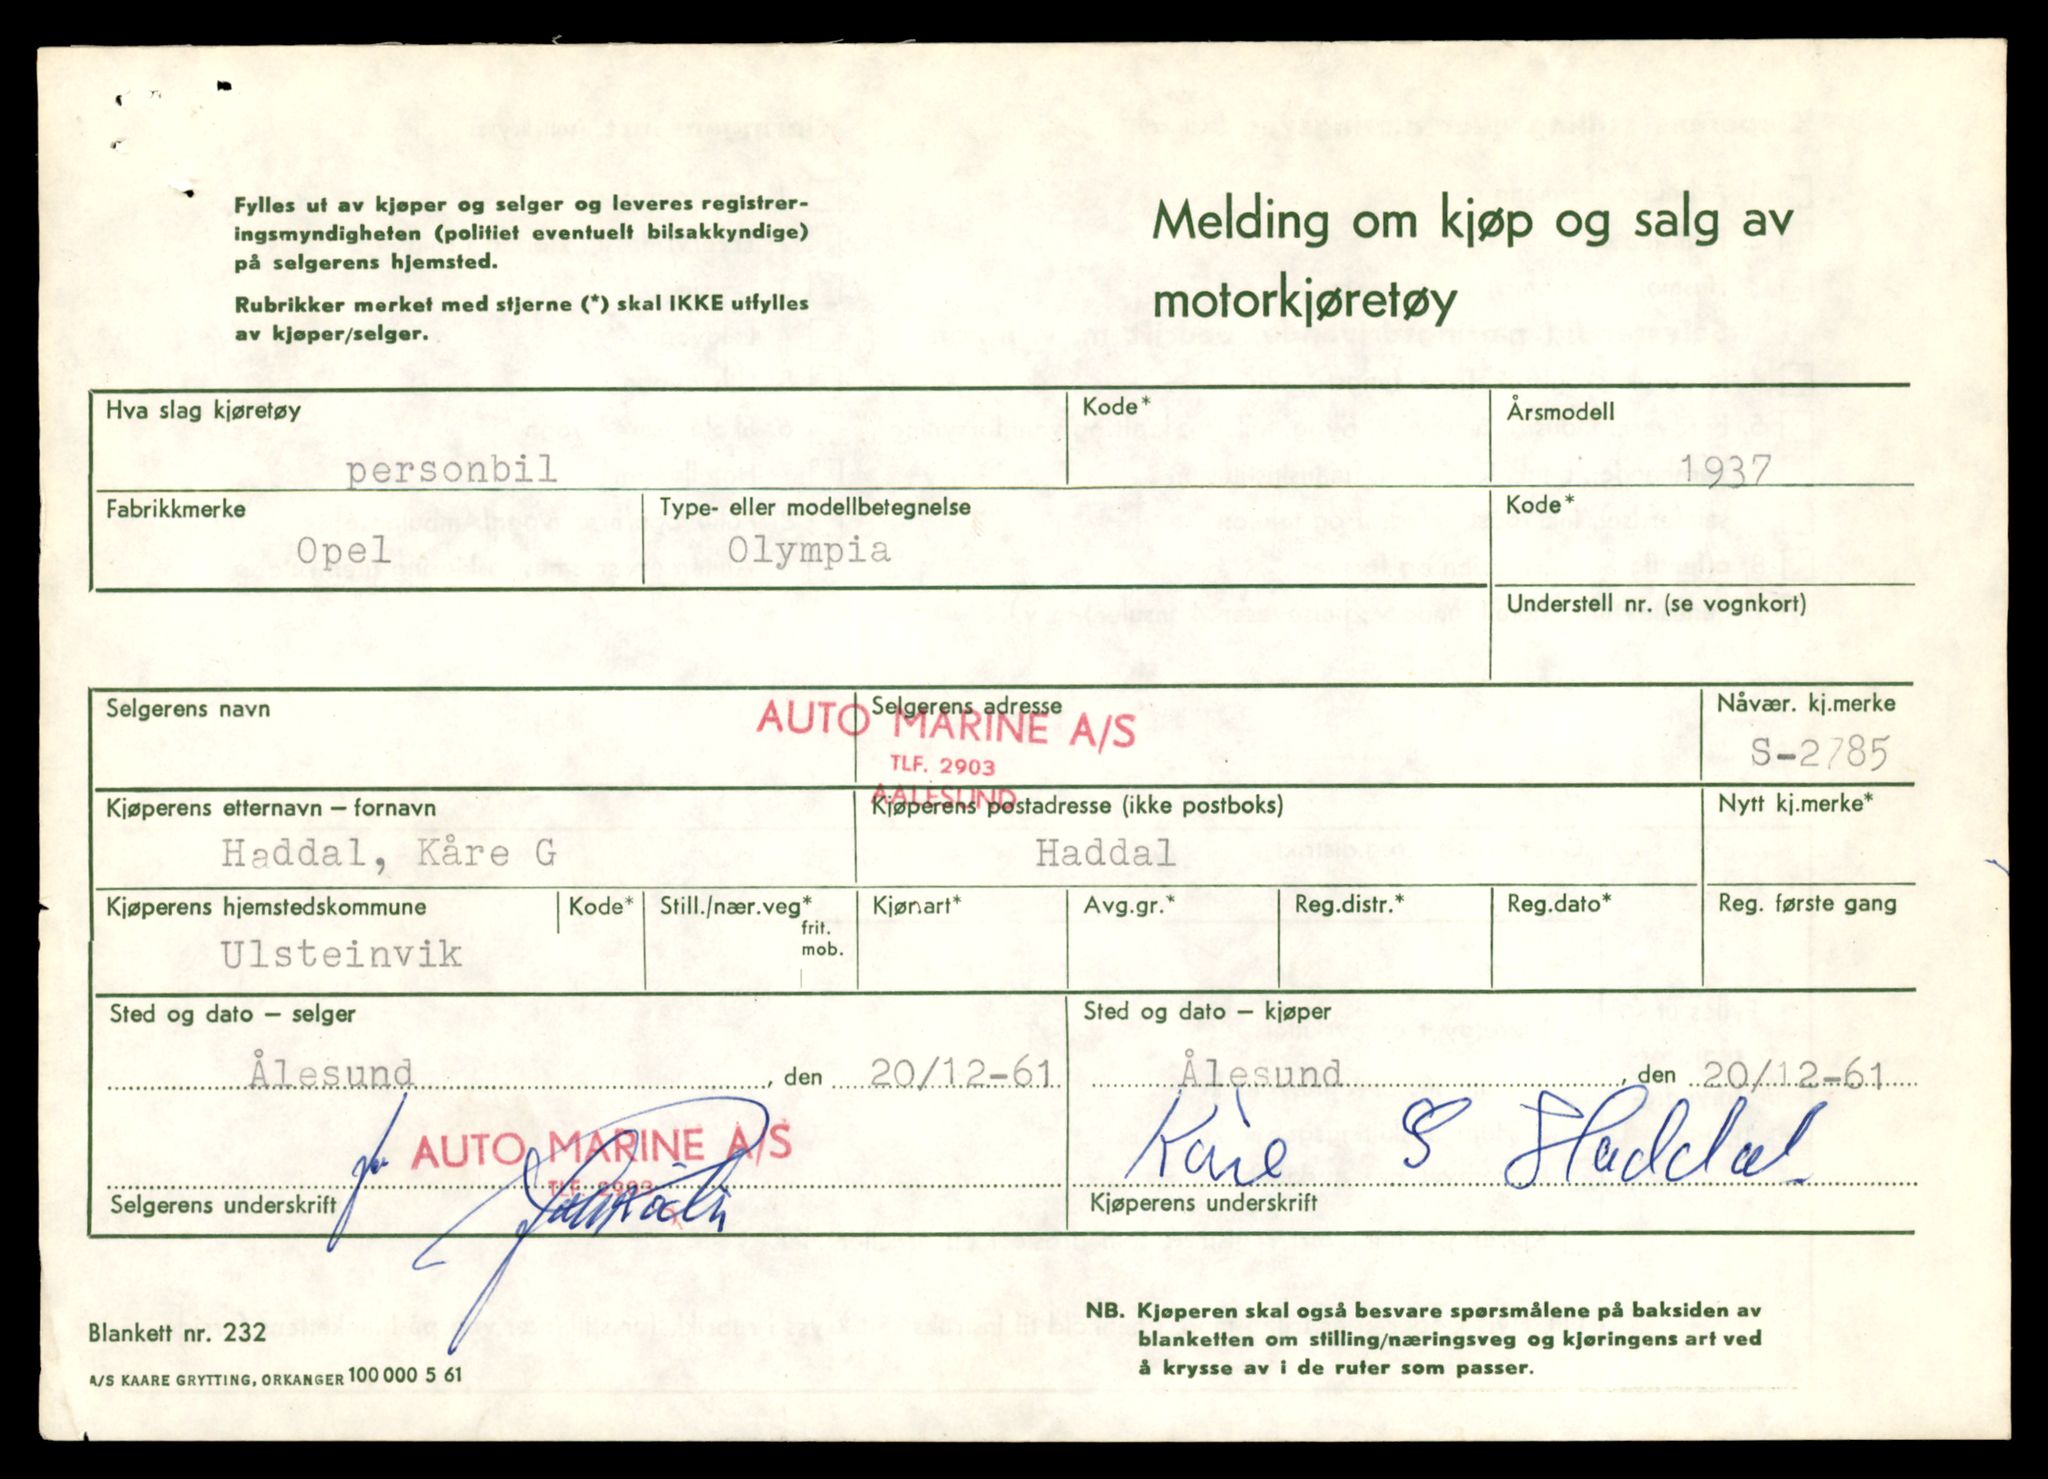 Fylles ut av kjøper og selger og leveres registrer-
ingsmyndigheten (politiet eventuelt bilsakkyndige)
på selgerens hjemsted.
Rubrikker merket med stjerne (*) skal IKKE utfylles
av kjøper/selger.
Melding om kjøp og salg av
motorkjøretøy
Hva slag kjøretøy
Kode*
Årsmodell
personbil
1937
Fabrikkmerke
Type- eller modellbetegnelse
Kode*
Opel
Olympia
Understell nr. (se vognkort)
Selgerens navn
Selgerens adresse
Nåvær. kj.merke
AUTO MARINE A/S
TLF. 2903
AALESUND
S-2785
Kjøperens etternavn – fornavn
Kjøperens postadresse (ikke postboks)
Nytt kj.merke*
Haddal, Kåre G
Haddal
Kjøperens hjemstedskommune
Kode*
Still./nær.veg*
frit.
mob.
Kjønart*
Avg.gr.*
Reg.distr.*
Reg.dato*
Reg. første gang
Ulsteinvik
Sted og dato – selger
Sted og dato – kjøper
Ålesund, den 20/12-61
Ålesund, den 20/12-61
AUTO MARINE A/S
TLF. 2903
Kåre G Haddal
Selgerens underskrift
Kjøperens underskrift
Blankett nr. 232
A/S KAARE GRYTTING, ORKANGER 100 000 5 61
NB. Kjøperen skal også besvare spørsmålene på baksiden av
blanketten om stilling/næringsveg og kjøringens art ved
å krysse av i de ruter som passer.